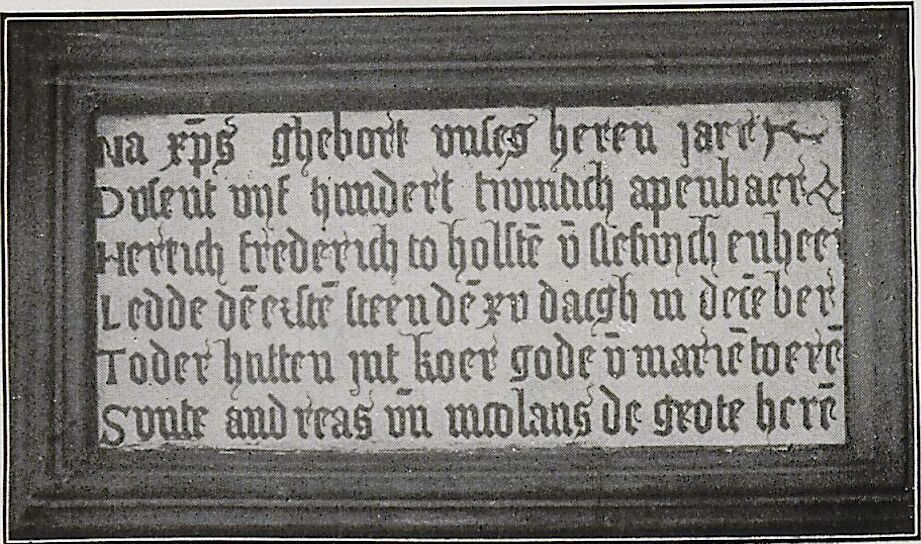 Na xp̄s ghebort vnses heren jare
Dusent vyf hundert twintich apenbaer
Hertich frederich to holstē v̄ sleswich en heer
Ledde dē erstē steen dē xv dagh in decēber
To der hutten int koer gode v̄ mariē to erē
Sunte andreas vn̄ nicolaus de grote herē